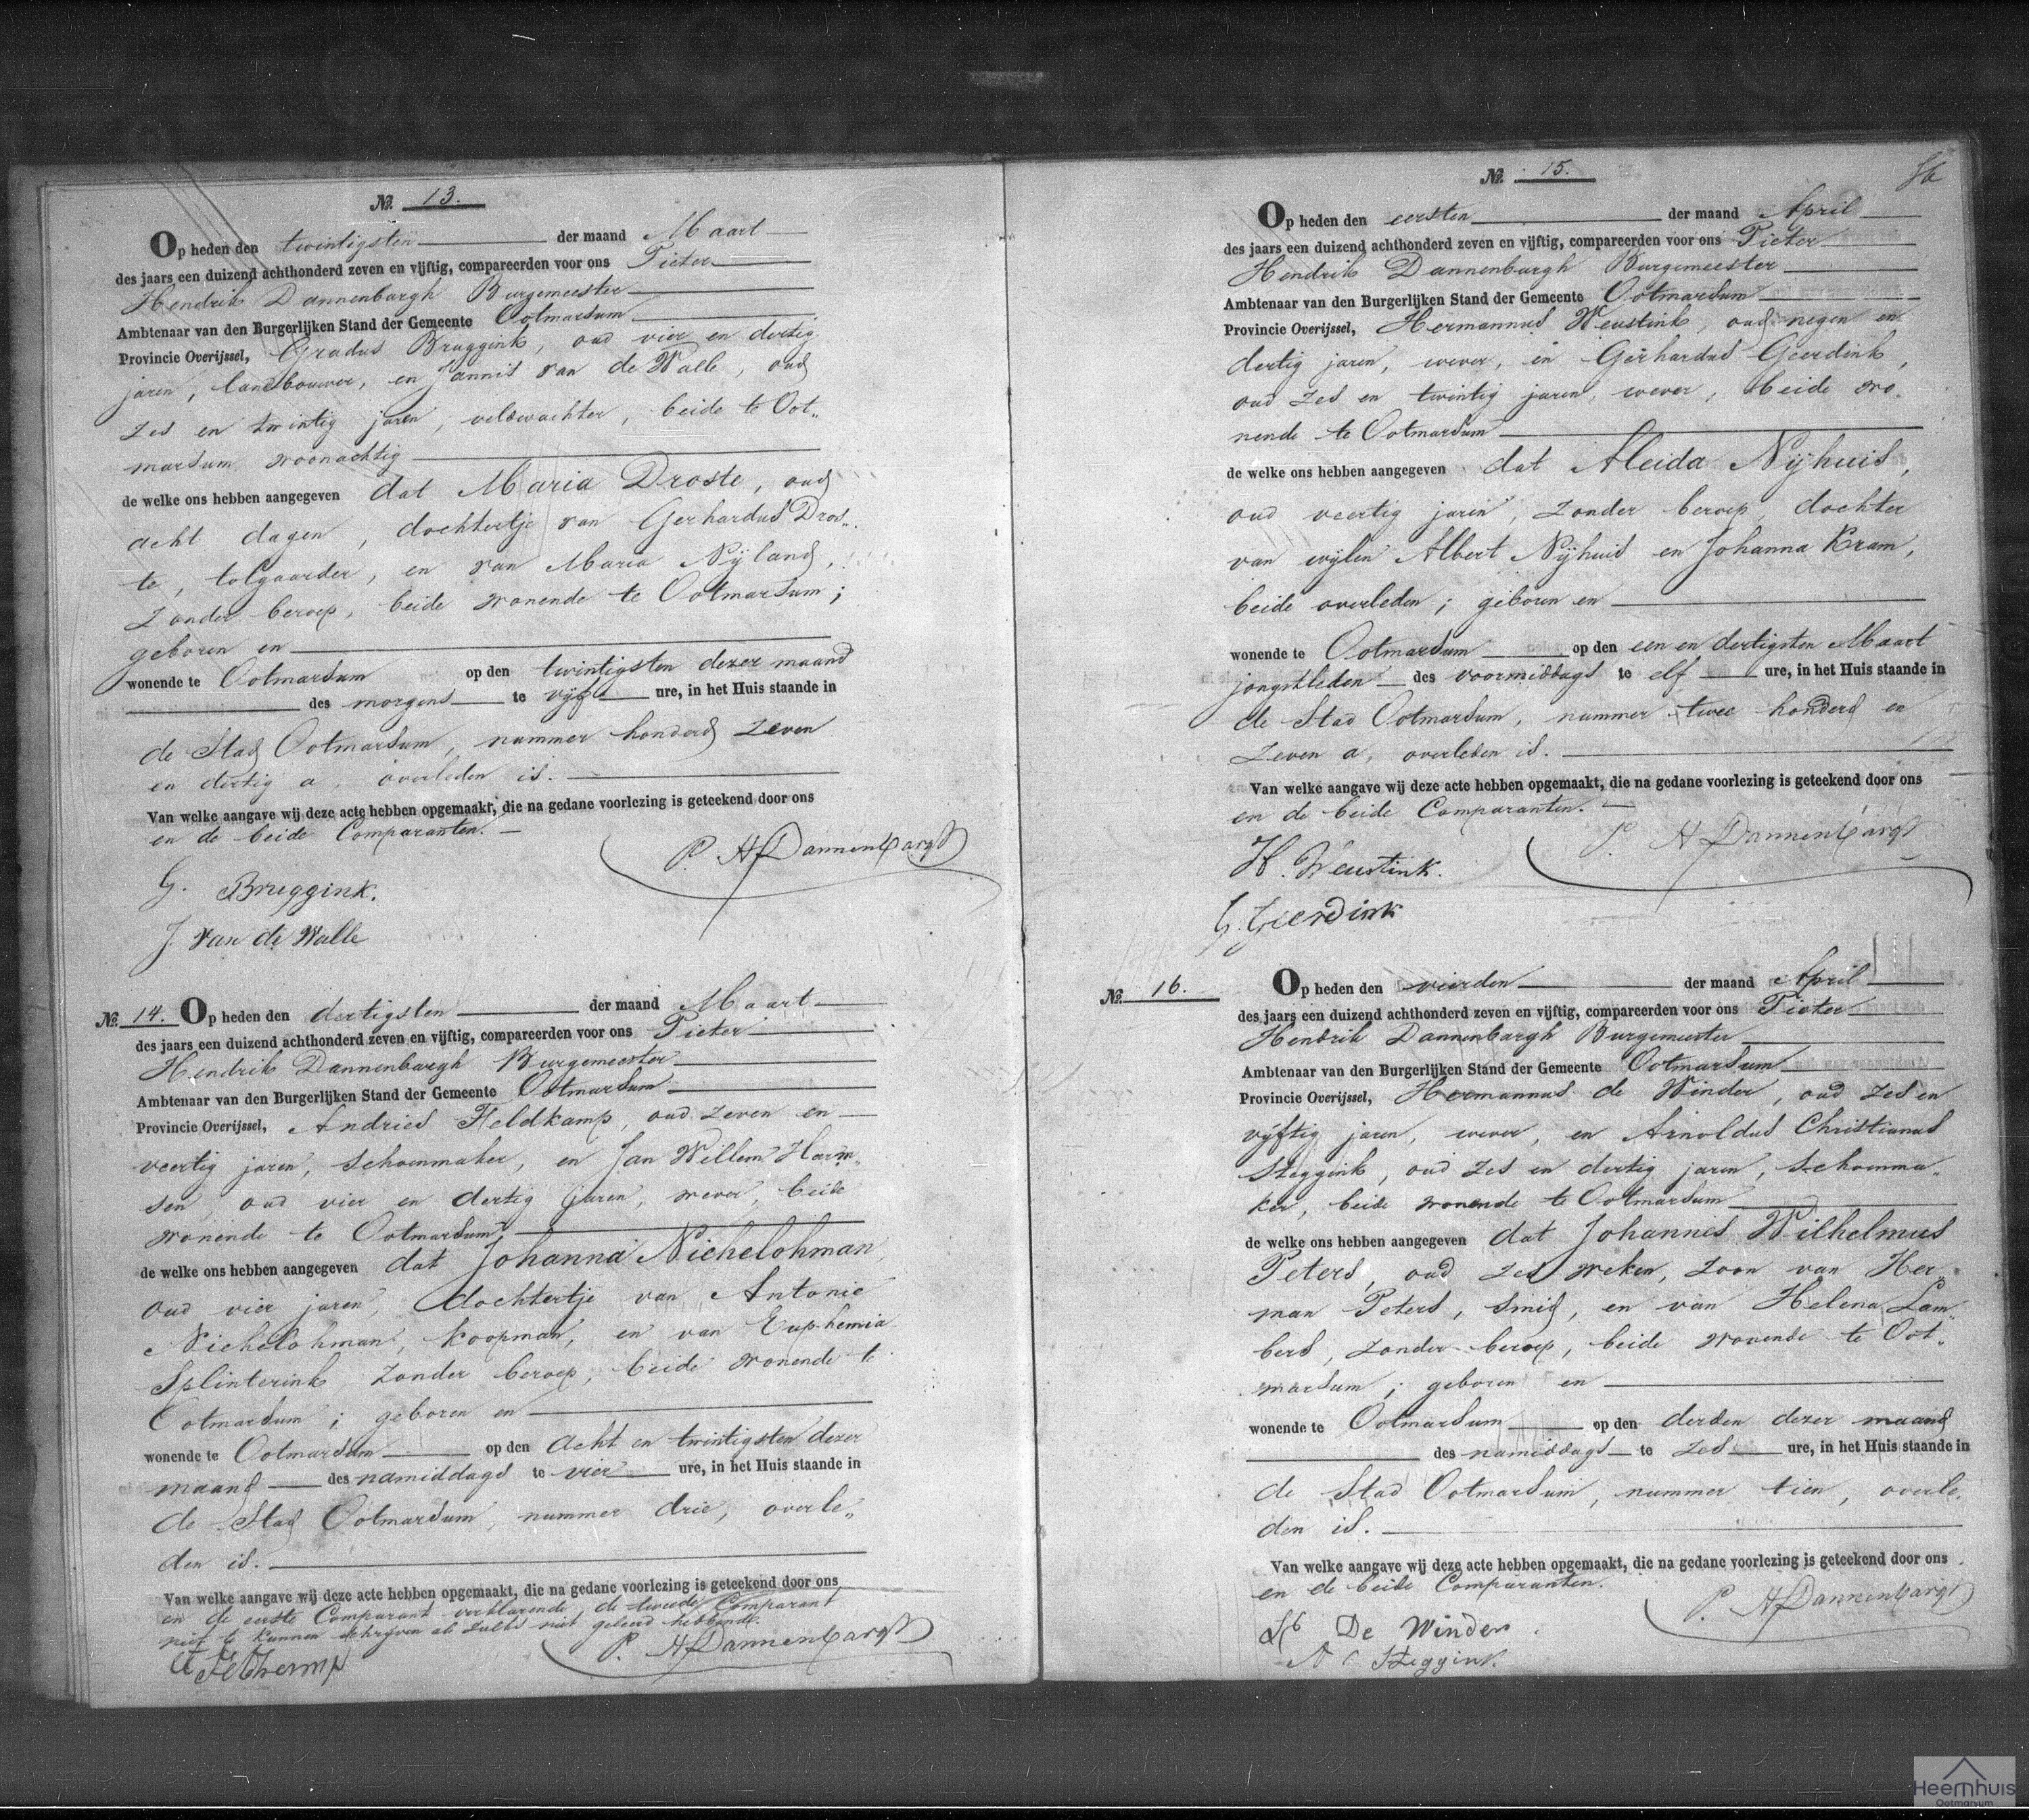 No. 13.
Op heden den twintigsten der maand Maart
des jaars een duizend achthonderd zeven en vijftig, compareerden voor ons Pieter
Hendrik Dannenbargh Burgemeester
Ambtenaar van den Burgerlijken Stand der Gemeente Ootmarsum
Provincie Overijssel, Gradus Bruggink, oud vier en dertig
jaren, landbouwer, en Jannis van de Walle, oud
zes en twintig jaren, veldwachter, beide te Oot„
marsum woonachtig
de welke ons hebben aangegeven dat Maria Droste, oud
acht dagen, dochtertje van Gerhardus Dros„
te, tolgaarder, en van Maria Nijland,
zonder beroep, beide wonende te Ootmarsum;
geboren en
wonende te Ootmarsum op den twintigsten dezer maand
des morgens te vijf ure, in het Huis staande in
de Stad Ootmarsum, nummer honderd zeven
en dertig a, overleden is.
Van welke aangave wij deze acte hebben opgemaakt, die na gedane voorlezing is geteekend door ons
en de beide Comparanten.
P. H Dannenbargh
G. Bruggink.
J. van de Walle
No. 14. Op heden den dertigsten der maand Maart
des jaars een duizend achthonderd zeven en vijftig, compareerden voor ons Pieter
Hendrik Dannenbargh Burgemeester
Ambtenaar van den Burgerlijken Stand der Gemeente Ootmarsum
Provincie Overijssel, Andries Feldkamp, oud zeven en
veertig jaren, schoenmaker, en Jan Willem Harm„
sen, oud vier en dertig jaren, wever, beide
wonende te Ootmarsum
de welke ons hebben aangegeven dat Johanna Nichelohman
oud vier jaren, dochtertje van Antonie
Nichelohman, koopman, en van Euphemia
Splinterink zonder beroep, beide wonende te
Ootmarsum; geboren en
wonende te Ootmarsum op den acht en twintigsten dezer
maand des namiddags te vier ure, in het Huis staande in
de Stad Ootmarsum, nummer drie, overle„
den is.
Van welke aangave wij deze acte hebben opgemaakt, die na gedane voorlezing is geteekend door ons
en de eerste Comparant verklarende de tweede Comparant
niet te kunnen schrijven als zulks niet geleerd hebbende.
P. H Dannenbargh
No. 15.
Op heden den eersten der maand April
des jaars een duizend achthonderd zeven en vijftig, compareerden voor ons Pieter
Hendrik Dannenbargh Burgemeester
Ambtenaar van den Burgerlijken Stand der Gemeente Ootmarsum
Provincie Overijssel, Hermannus Weustink, oud negen en
dertig jaren, wever, en Gerhardus Geerdink,
oud zes en twintig jaren, wever, beide wo„
nende te Ootmarsum
de welke ons hebben aangegeven dat Aleida Nijhuis,
oud veertig jaren, zonder beroep, dochter
van wijlen Albert Nijhuis en Johanna Kram,
beide overleden; geboren en
wonende te Ootmarsum op den een en dertigsten Maart
jongstleden des voormiddags te elf ure, in het Huis staande in
de Stad Ootmarsum, nummer twee honderd en
zeven a, overleden is.
Van welke aangave wij deze acte hebben opgemaakt, die na gedane voorlezing is geteekend door ons
en de beide Comparanten.
P. H Dannenbargh
H. Weustink.
G. Geerdink
No. 16. Op heden den vierden der maand April
des jaars een duizend achthonderd zeven en vijftig, compareerden voor ons Pieter
Hendrik Dannenbargh Burgemeester
Ambtenaar van den Burgerlijken Stand der Gemeente Ootmarsum
Provincie Overijssel, Hermannus de Winder, oud zes en
vijftig jaren, wever, en Arnoldus Christianus
Steggink, oud zes en dertig jaren, schoenma„
ker, beide wonende te Ootmarsum
de welke ons hebben aangegeven dat Johannes Wilhelmus
Peters, oud zes weken, zoon van Her„
man Peters, smid, en van Helena Lam„
bers, zonder beroep, beide wonende te Oot„
marsum; geboren en
wonende te Ootmarsum op den derden dezer maand
des namiddags te zes ure, in het Huis staande in
de Stad Ootmarsum, nummer tien, overle„
den is.
Van welke aangave wij deze acte hebben opgemaakt, die na gedane voorlezing is geteekend door ons
en de beide Comparanten.
P. H Dannenbargh
H De Winder
A C Steggink.
Heemhuis
Ootmarsum